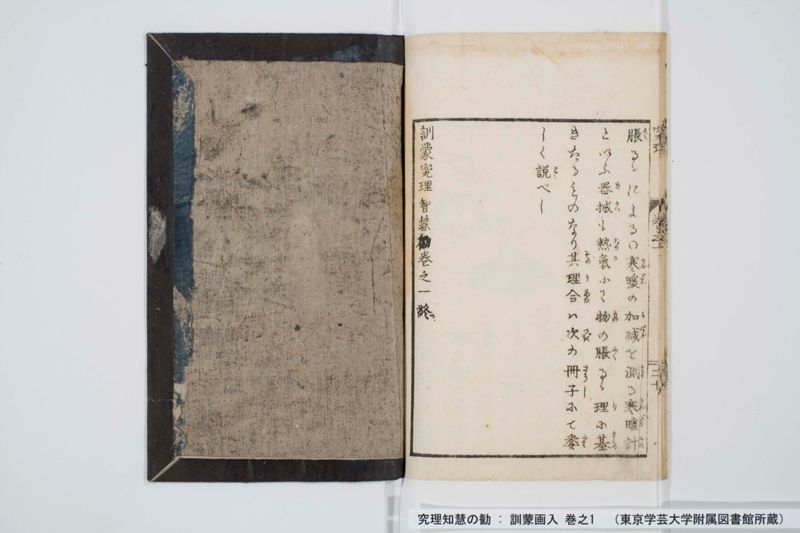 脹るゝによる〇寒暖の加減を測る寒暖計
といふ器械も熱氣にて物の脹るゝ理に基
きたるものなり其理合ハ次の冊子にて委
しく説べし
訓蒙究理智慧勸巻之一終
究理知慧の勧 : 訓蒙画入 巻之1 （東京学芸大学附属図書館所蔵）